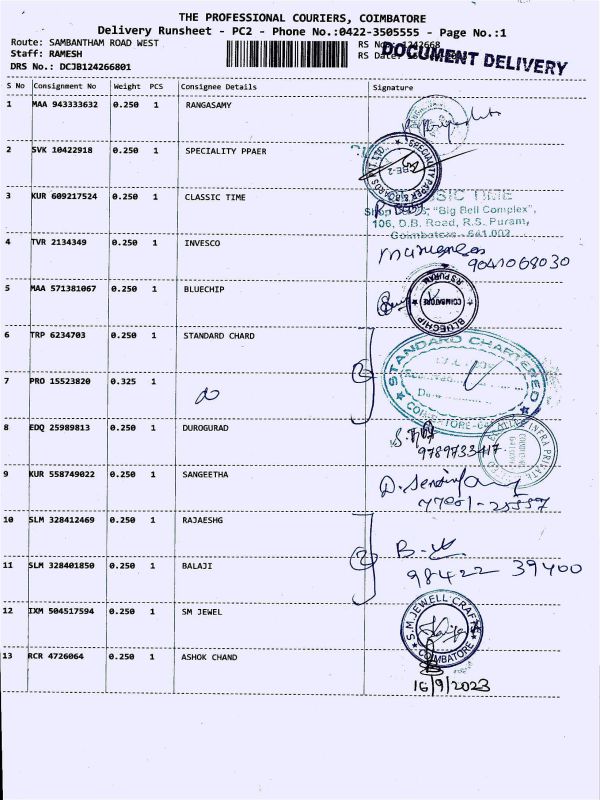 THE PROFESSIONAL COURIERS, COIMBATORE
Delivery Runsheet - PC2 - Phone No.:0422-3505555 - Page No.:1
Route: SAMBANTHAM ROAD WEST
RS No 1242668
Staff: RAMESH
RS Date
DOCUMENT DELIVERY
DRS No.: DCJB124266801
S No Consignment No Weight PCS Consignee Details Signature
1 MAA 943333632 0.250 1 RANGASAMY
2 SVK 10422918 0.250 1 SPECIALITY PPAER
SPECIALITY PAPER &
3 KUR 609217524 0.250 1 CLASSIC TIME
SIC TIME
"Big Bell Complex",
106, D.B. Road, R.S. Puram,
Coimbatore - 641 002
4 TVR 2134349 0.250 1 INVESCO
9041068030
5 MAA 571381067 0.250 1 BLUECHIP
BLUECHIP R S PURAM
COIMBATORE
6 TRP 6234703 0.250 1 STANDARD CHARD
STANDARD CHARTERED
COIMBATORE-641
2
7 PRO 15523820 0.325 1
8 EDQ 25989813 0.250 1 DUROGURAD
9789733417
INFRA PRIVATE
9 KUR 558749022 0.250 1 SANGEETHA
77081-25557
10 SLM 328412469 0.250 1 RAJAESHG
2
11 SLM 328401850 0.250 1 BALAJI
98422 39400
12 IXM 504517594 0.250 1 SM JEWEL
S.M.JEWELL CRAFT
COIMBATORE
13 RCR 4726064 0.250 1 ASHOK CHAND
16/9/2023